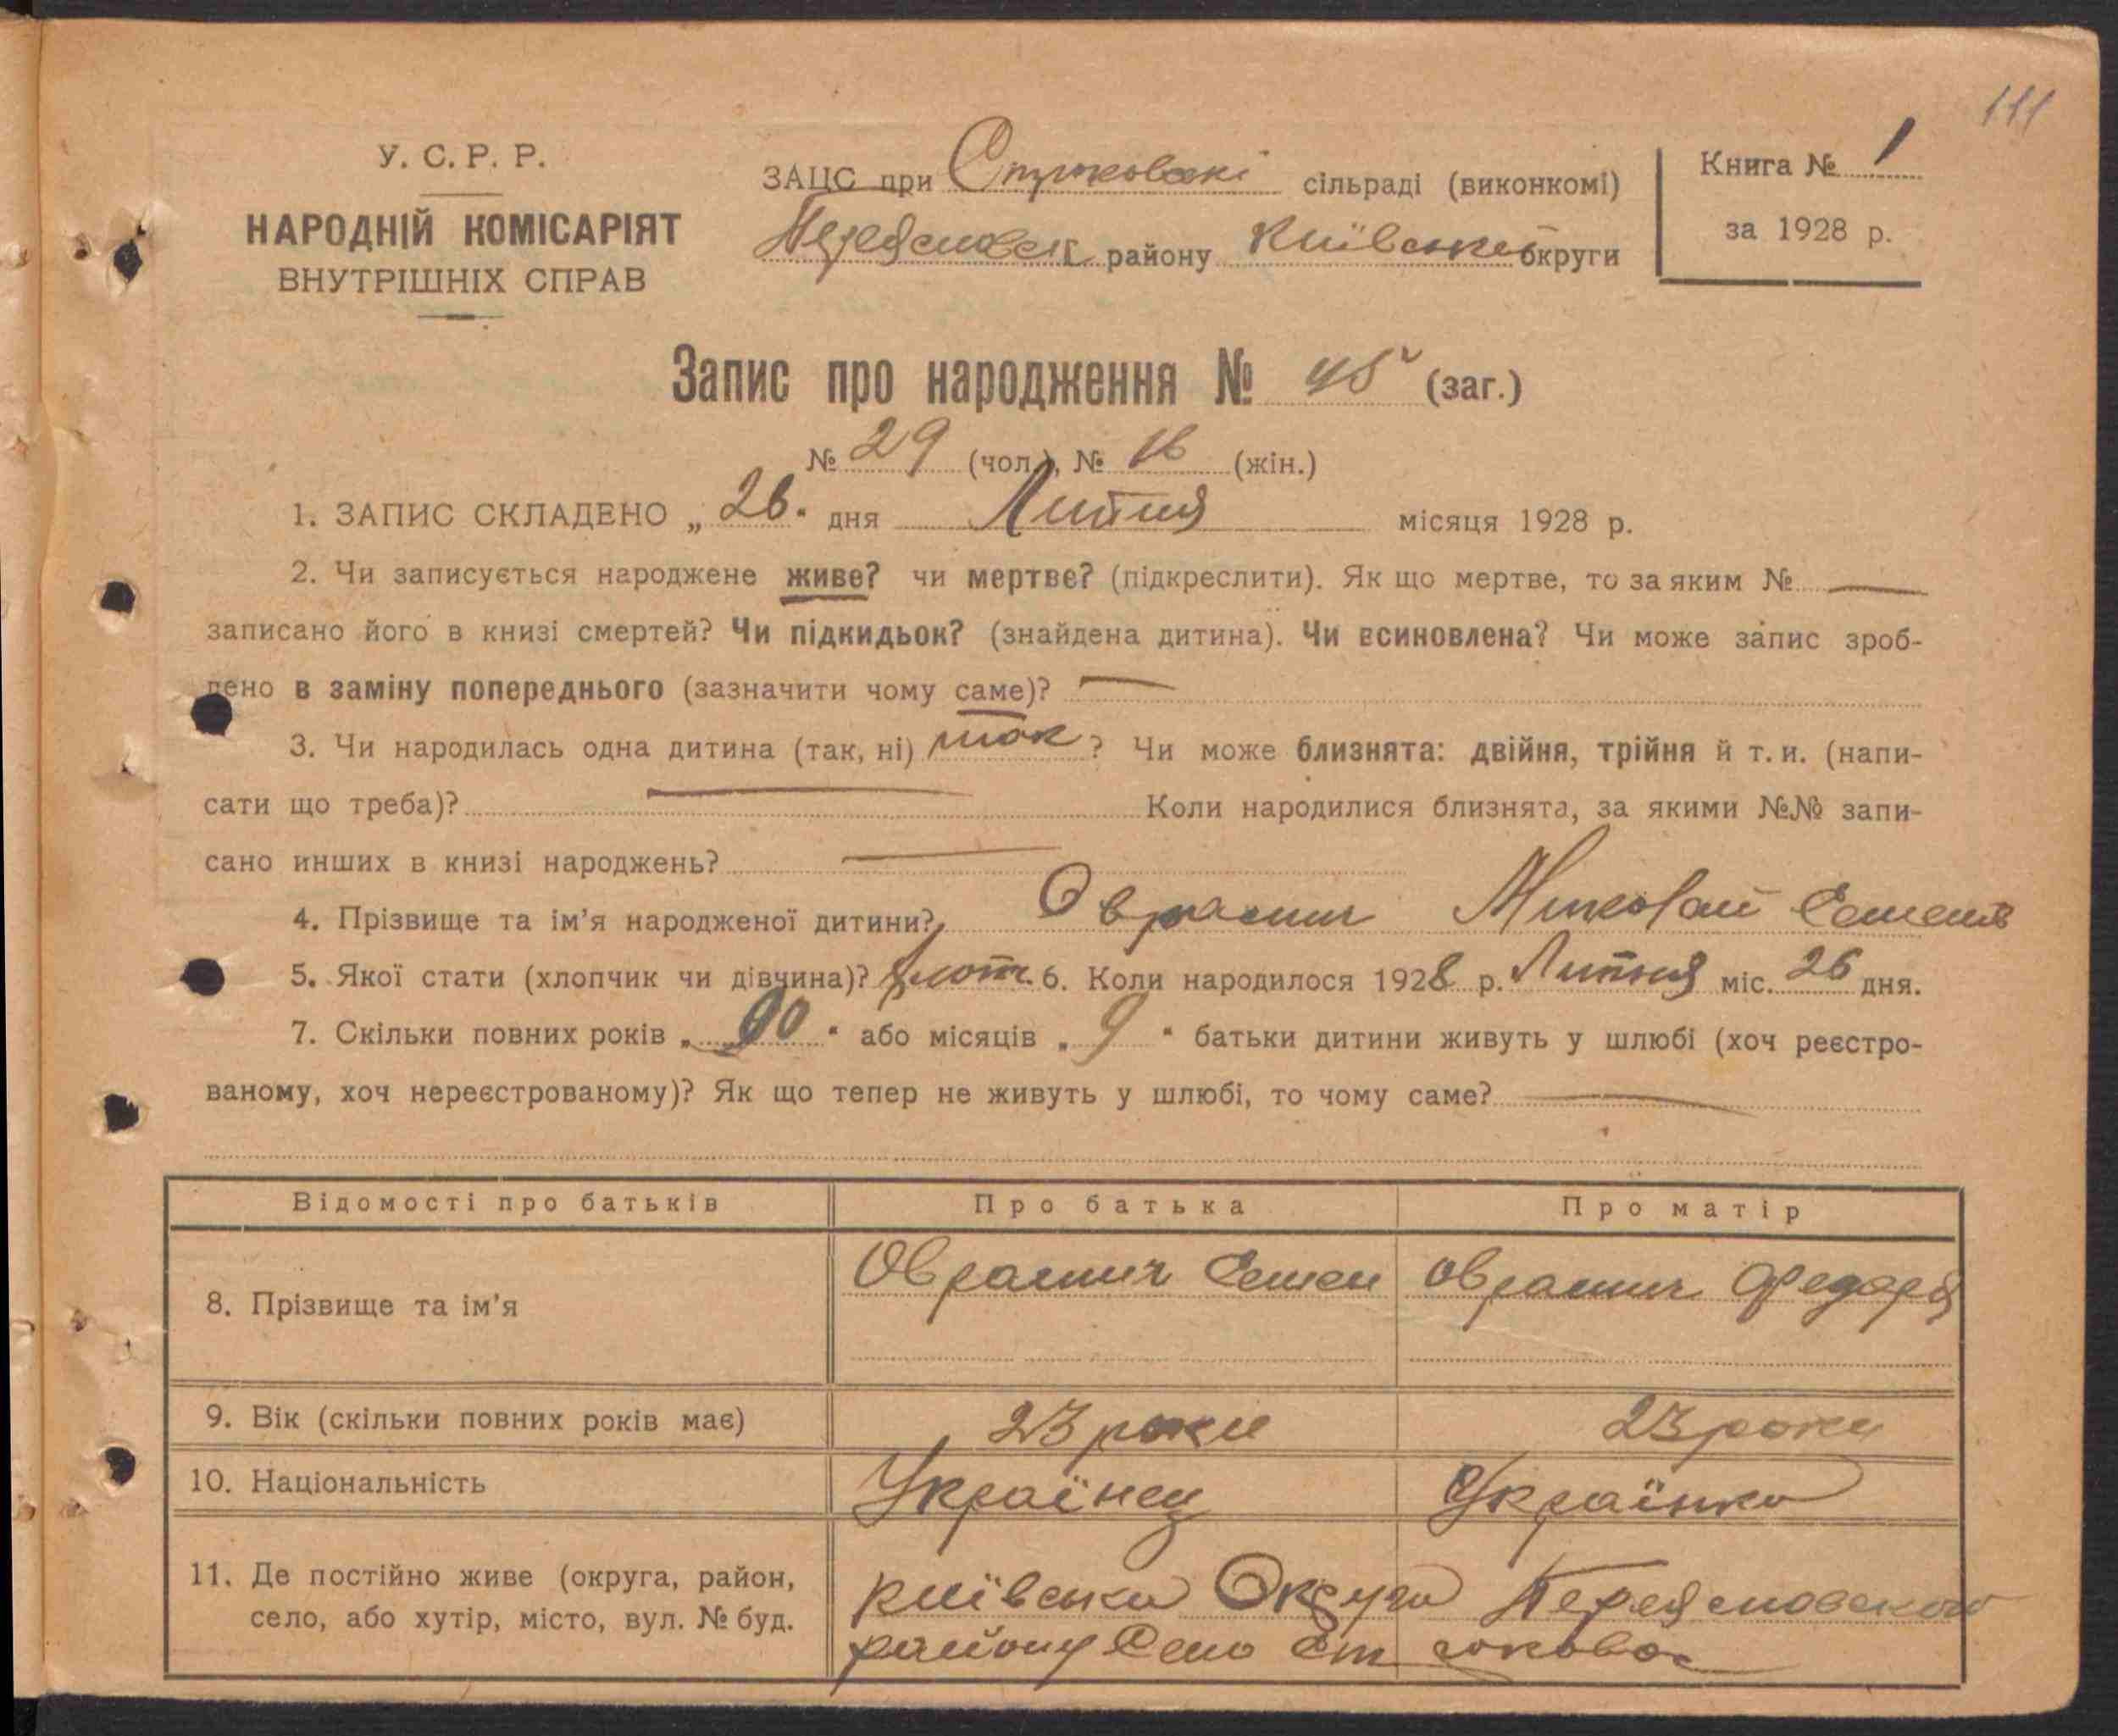 111
У. С. Р. Р.
НАРОДНІЙ КОМІСАРІЯТ
ВНУТРІШНІХ СПРАВ
ЗАЦС при сільраді (виконкомі)
району Київської округи
Книга № 1
за 1928 р.
Запис про народження № 45 (заг.)
№ 29 (чол.), № 16 (жін.)
1. ЗАПИС СКЛАДЕНО „ 26 " дня Липня місяця 1928 р.
2. Чи записується народжене живе? чи мертве? (підкреслити). Як що мертве, то за яким № —
записано його в книзі смертей? Чи підкидьок? (знайдена дитина). Чи всиновлена? Чи може запис зроб-
лено в заміну попереднього (зазначити чому саме)? —
3. Чи народилась одна дитина (так, ні) так ? Чи може близнята: двійня, трійня й т. и. (напи-
сати що треба)? — Коли народилися близнята, за якими №№ запи-
сано инших в книзі народжень? —
4. Прізвище та ім'я народженої дитини? Оврамич Миколай Семенів
5. Якої стати (хлопчик чи дівчина)? 6. Коли народилося 1928 р. Липня міс. 26 дня.
7. Скільки повних років „ 00 " або місяців „ 9 " батьки дитини живуть у шлюбі (хоч реєстро-
ваному, хоч нереєстрованому)? Як що тепер не живуть у шлюбі, то чому саме? —
Відомості про батьків Про батька Про матір
8. Прізвище та ім'я Оврамич Семен Оврамич Федора
9. Вік (скільки повних років має) 23 роки 23 роки
10. Національність Українец Українка
11. Де постійно живе (округа, район, Київська Округа
село, або хутір, місто, вул. № буд. району Село